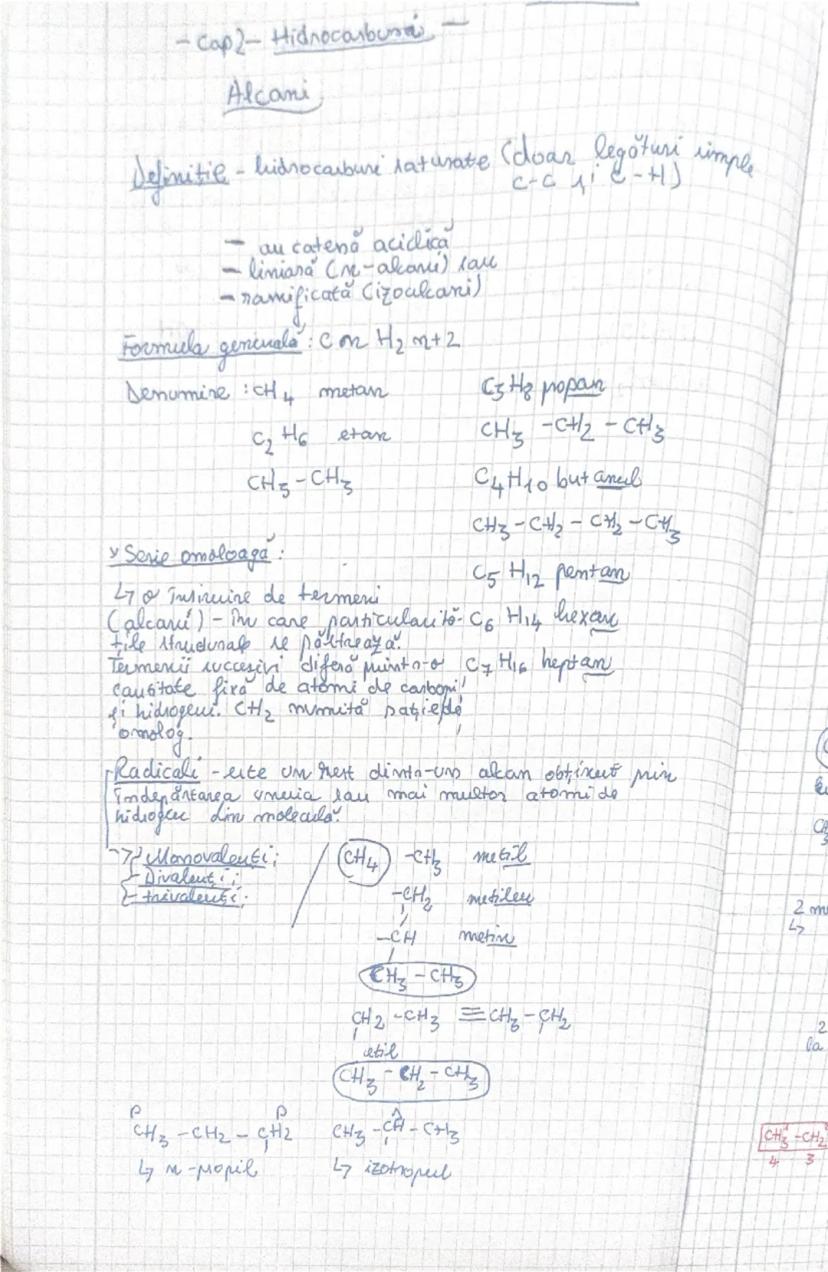 - Cap2 - Hidrocarburi -
Alcani
Definiție - hidrocarburi saturate (doar legături simple
C-C și C-H)
- au catenă aciclică
- liniară (n-alcani) sau
- ramificată (izoalcani)
Formula generală: Cn H2n+2
Denumire: CH4 metan
C2H6 etan
CH3-CH3
C3H8 propan
CH3 -CH2 - CH3
C4H10 butanul
CH3-CH2-CH2-CH3
C5H12 pentan
C6H14 hexan
C7H16 heptan
Serie omoloagă:
↳ o înșiruire de termeni
(alcani) - în care particularită-
țile structurale se păstrează.
Termenii succesivi diferă printr-o
cantitate fixă de atomi de carboni
și hidrogeni. CH2 numită
omolog.
Radicali - este un rest dintr-un alcan obținut prin
îndepărtarea unuia sau mai multor atomi de
hidrogen din moleculă.
Monovalenți;
Divalenți;
trivalenți.
CH4 -CH3 metil
-CH2 metilen
-CH metin
CH3-CH3
CH2-CH3 ≡ CH3-CH2
etil
CH3-CH2-CH3
CH3-CH2-CH2
↳ n-propil
CH3-CH-CH3
↳
2
2
la
CH3-CH2
4 3